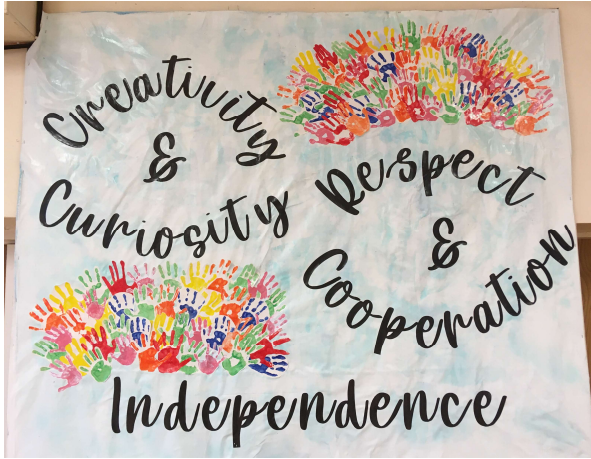 Creativity
&
Curiosity
Respect
&
Cooperation
Independence